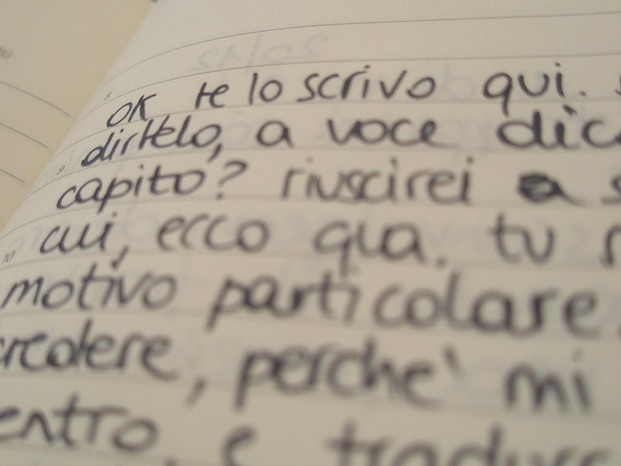 OK te lo scrivo qui.
dirtelo, a voce dic
capito? riuscirei a s
cui, ecco qua. tu
motivo particolare.
credere, perche' mi
entro, e traduss